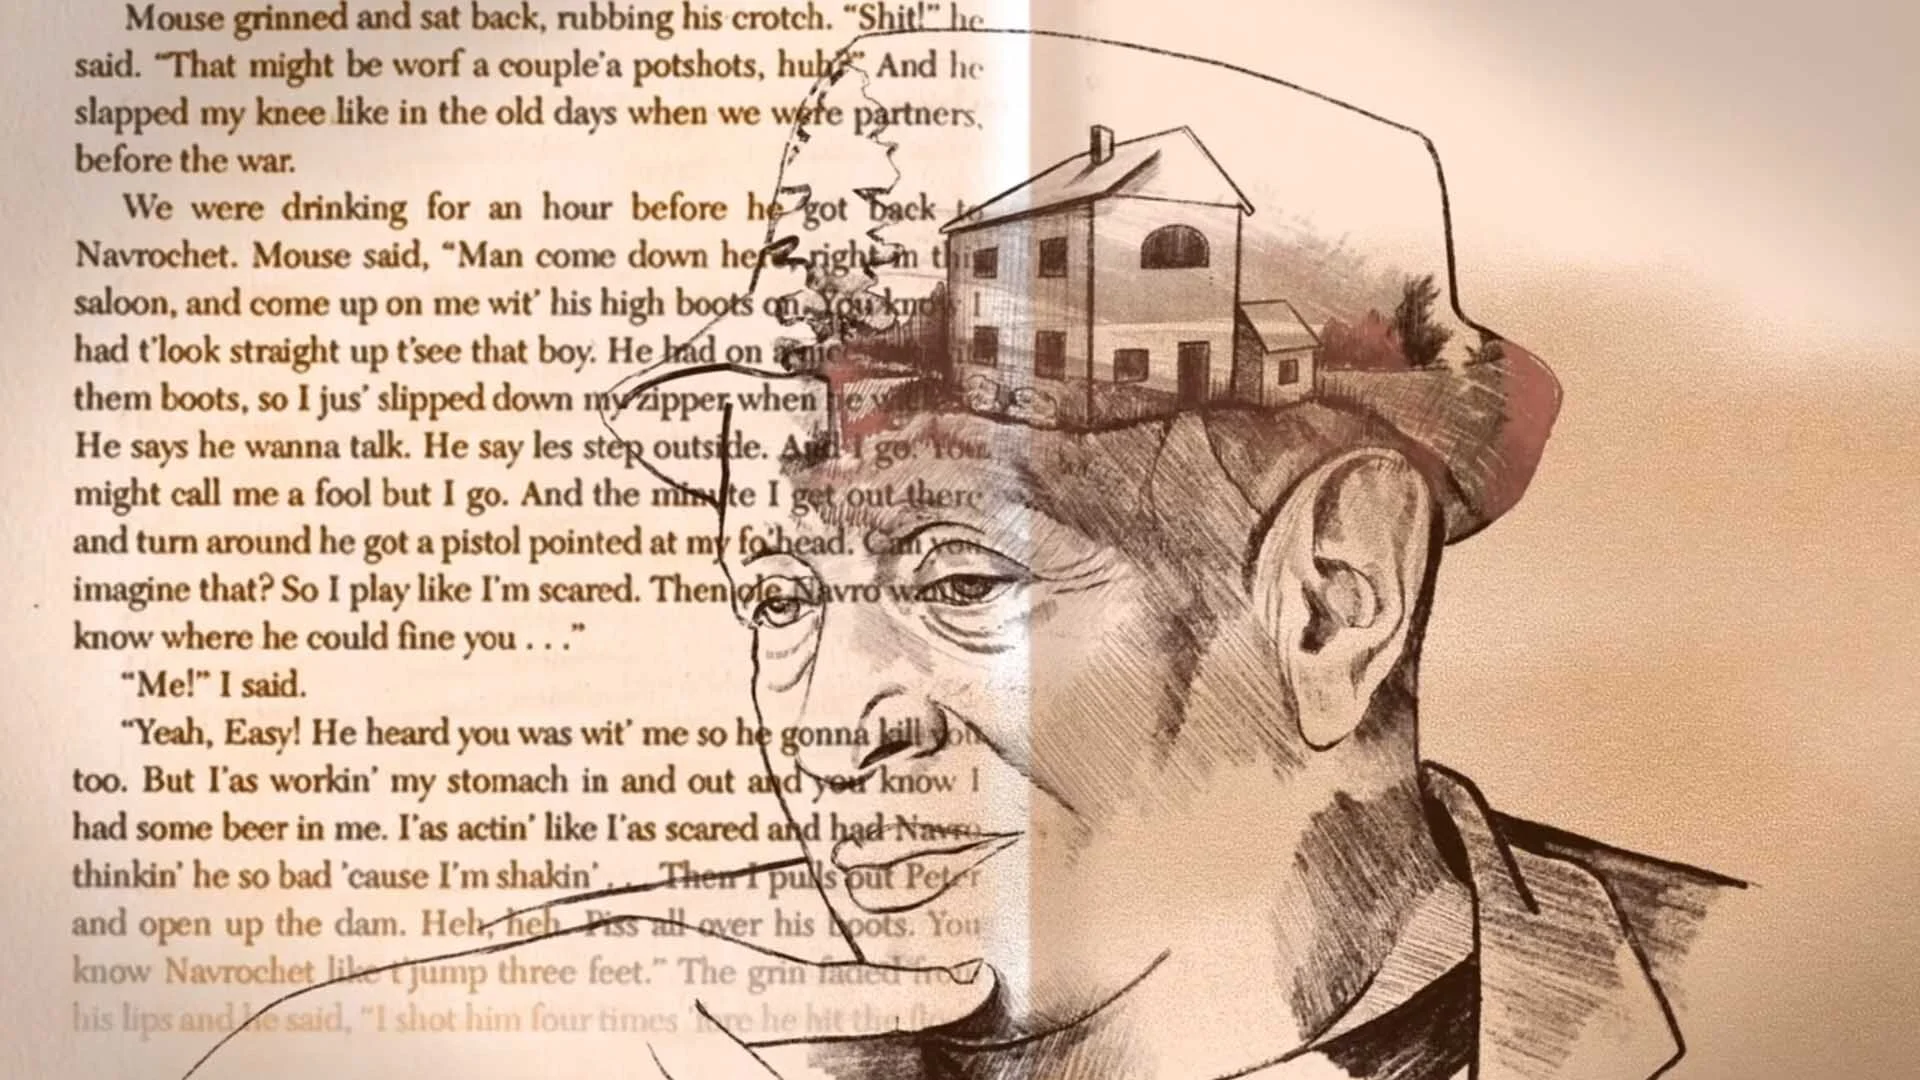 Mouse grinned and sat back, rubbing his crotch. “Shit!” he
said. “That might be worf a couple’a potshots, huh?” And he
slapped my knee like in the old days when we were partners,
before the war.
We were drinking for an hour before he got back to
Navrochet. Mouse said, “Man come down here, right in this
saloon, and come up on me wit’ his high boots on. You know I
had t’look straight up t’see that boy. He had on a nice
them boots, so I jus’ slipped down my zipper when he
He says he wanna talk. He say les step outside. And I go. You
might call me a fool but I go. And the minute I get out there
and turn around he got a pistol pointed at my fo’head. Can you
imagine that? So I play like I’m scared. Then ole Navro wants
know where he could fine you . . .”
“Me!” I said.
“Yeah, Easy! He heard you was wit’ me so he gonna kill you
too. But I’as workin’ my stomach in and out and you know I
had some beer in me. I’as actin’ like I’as scared and had Navro
thinkin’ he so bad ’cause I’m shakin’ . . . Then I pulls out Peter
and open up the dam. Heh, heh. Piss all over his boots. You
know Navrochet like t’jump three feet.” The grin faded from
his lips and he said, “I shot him four times ’fore he hit the floor